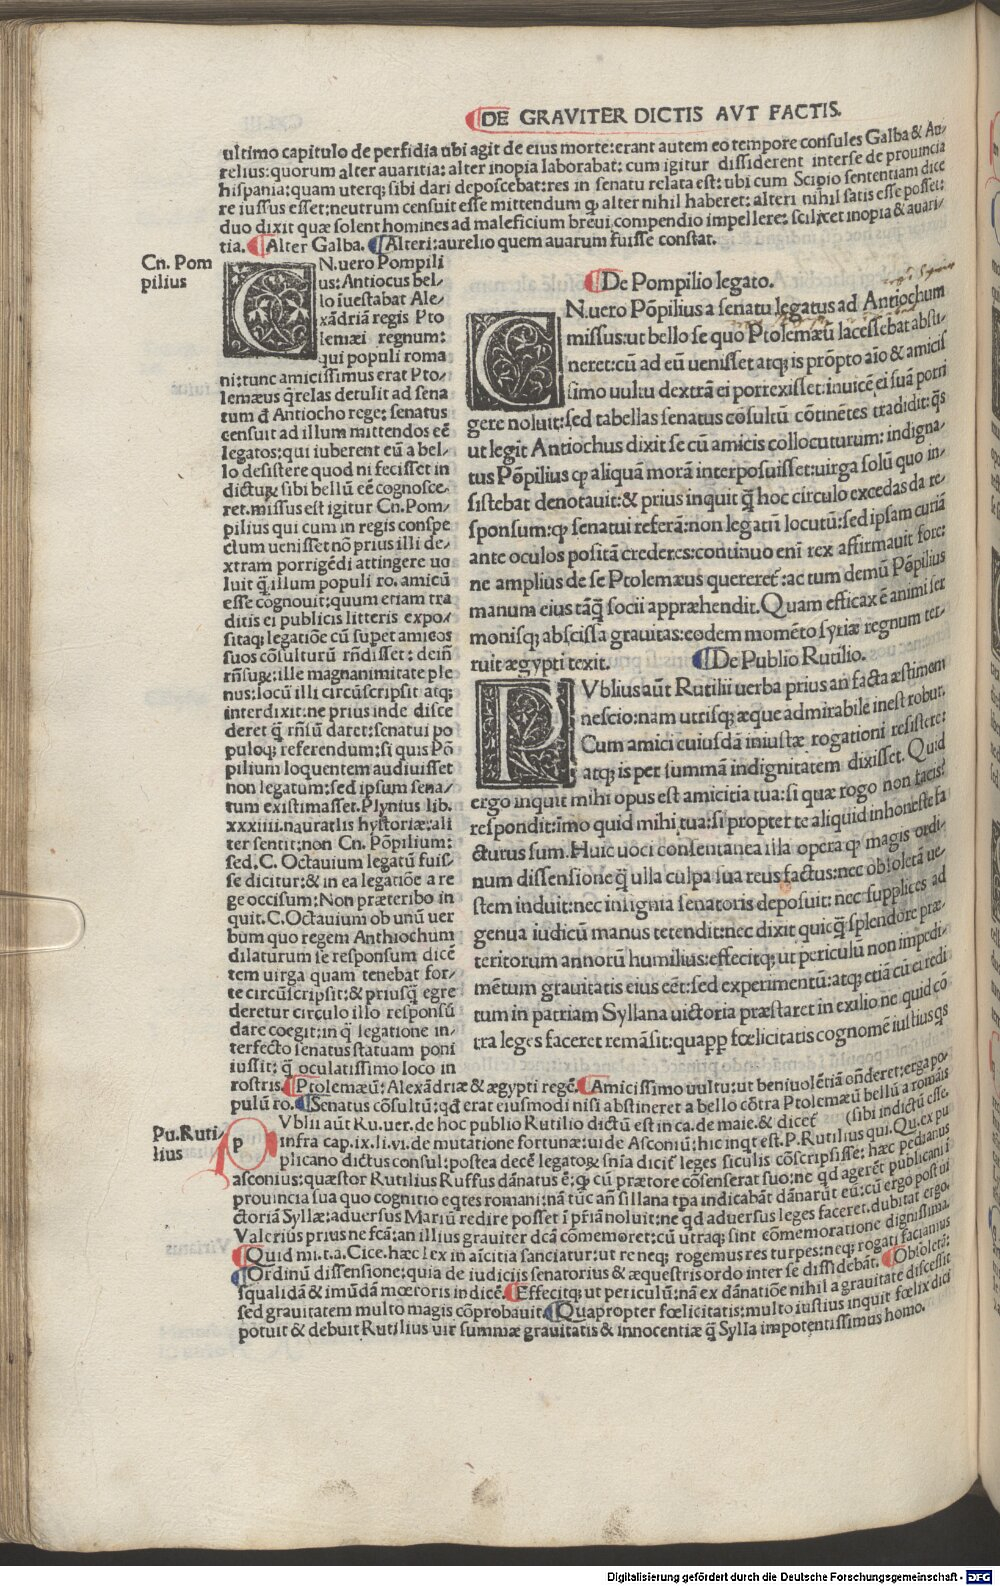 DE GRAVITER DICTIS AVT FACTIS.
ultimo capitulo de perfidia ubi agit de eius morte:erant autem eo tempore consules Galba & Au-
relius:quorum alter auaritia: alter inopia laborabat: cum igitur dissiderent inter se de prouincia
hispania:quam uterq; sibi dari deposcebat:res in senatu relata est: ubi cum Scipio sententiam dice
re iussus esset:neutrum censuit esse mittendum ꝙ alter nihil haberet: alteri nihil satis esse posset:
duo dixit quæ solent homines ad maleficium breui compendio impellere: scilicet inopia & auari-
tia. Alter Galba. Alteri:aurelio quem auarum fuisse constat.
Cn. Pom
pilius
CN.uero Pompili
us: Antiocus bel-
lo īuestabat Ale-
xādriā regis Pto
lemæi regnum:
qui populi roma
ni:tunc amicissimus erat Pto-
lemæus q̄relas detulit ad sena
tum đ Antiocho rege: senatus
censuit ad illum mittendos eē
legatos:qui iuberent eū a bel-
lo desistere quod ni fecisset in
dictuꝝ sibi bellū eē cognosce-
ret.missus est igitur Cn.Pom-
pilius qui cum in regis conspe
ctum uenisset nō prius illi de-
xtram porrigēdi attingere uo
luit q̄ illum populi ro. amicū
esse cognouit:quum etiam tra
ditis ei publicis litteris expo-
sitaq; legatiōe cū supet amicos
suos cōsulturū rn̄disset: dein̄
rn̄suꝝ:ille magnanimitate ple
nus:locū illi circūscripsit atq;
interdixit:ne prius inde disce
deret q̄ rn̄sū daret:senatui po
puloq; referendum:si quis Pō
pilium loquentem audiuisset
non legatum:sed ipsum sena-
tum existimasset.Plynius lib.
xxxiiii.nauratlis hystoriæ:ali
ter sentit:non Cn. Pōpilium:
sed.C. Octauium legatū fuis-
se dicitur:& in ea legatiōe a re
ge occisum:Non præteribo in
quit.C.Octauium ob unū uer
bum quo regem Anthiochum
dilaturum se responsum dicē
tem uirga quam tenebat for-
te circūscripsit:& priusq̄ egre
deretur circulo illo responsū
dare coegit:in q̄ legatione in-
terfecto senatus statuam poni
iussit: q̄ oculatissimo loco in
rostris. Ptolemæū: Alexādriæ & ægypti regē. Amicissimo uultu:ut beniuolētiā ōnderet:erga po-
pulū ro. Senatus cōsultū:qđ erat eiusmodi nisi abstineret a bello cōtra Ptolemæū bellū a romāis
(sibi indictū esse.
De Pompilio legato.
CN.uero Pōpilius a senatu legatus ad Antiochum
missus:ut bello se quo Ptolemæū lacessebat absti-
neret:cū ad eū uenisset atq; is prōpto aīo & amicis
simo uultu dextrā ei porrexisset:inuicē ei suā porri
gere noluit:sed tabellas senatus cōsultū cōtinētes tradidit:q̄s
ut legit Antiochus dixit se cū amicis collocuturum: indigna-
tus Pōpilius ꝙ aliquā morā interposuisset:uirga solū quo in-
sistebat denotauit:& prius inquit q̄ hoc circulo excedas da re-
sponsum:ꝙ senatui referā:non legatū locutū:sed ipsam curiā
ante oculos positā crederes:continuo enī rex affirmauit fore:
ne amplius de se Ptolemæus quereret̄:ac tum demū Pōpilius
manum eius tāq̄ socii appræhendit. Quam efficax ē animi ser
monisq; abscissa grauitas:eodem momēto syriæ regnum ter-
ruit ægypti texit.
De Publio Rutilio.
PVblius aūt Rutilii uerba prius an facta æstimem
nescio:nam utrisq; æque admirabile inest robur.
Cum amici cuiusdā iniustæ rogationi resisteret:
atq; is per summā indignitatem dixisset. Quid
ergo inquit mihi opus est amicitia tua:si quæ rogo non facis?
respondit:imo quid mihi tua:si propter te aliquid inhoneste fa
cturus sum. Huic uoci consentanea illa opera ꝙ magis ordi-
num dissensione q̄ ulla culpa sua reus factus:nec obsoletā ue-
stem induit:nec insignia senatoris deposuit: nec supplices ad
genua iudicū manus tetendit:nec dixit quicq̄ splendore præ-
teritorum annorū humilius:effecitq; ut periculū non impedi-
mētum grauitatis eius eēt:sed experimentū:atq; etiā cū ei redi
tum in patriam Syllana uictoria præstaret in exilio ne quid cō
tra leges faceret remāsit:quapp̄ fœlicitatis cognomē iustius q̄s
Pu.Ruti-
lius
pVblii aūt Ru.uer.de hoc publio Rutilio dictū est in ca.de maie. & dicet̄
infra cap.ix.li.vi.de mutatione fortunæ:uide Asconiū:hic inqt est.P.Rutilius qui.Qu.ex pu
plicano dictus consul:postea decē legatoꝝ sn̄ia dicit̄ leges siculis cōscripsisse: hæc pedianus
asconius:quæstor Rutilius Ruffus dānatus ē:ꝙ cū prætore cōsenserat suo:ne qđ ageret publicani ī
prouincia sua quo cognitio eq̄tes romani:nā tūc an̄ sillana tp̄a indicabāt dānarūt eū:cū ergo post ui
ctoriā Syllæ:aduersus Mariū redire posset ī pr̄iā noluit:ne qđ aduersus leges faceret.dubitat ergo.
Valerius prius ne fcā:an illius grauiter dcā cōmemoret:cū utraq; sint cōmemoratione dignissima.
Quid mi.t.a.Cice.hæc lex in aīcitia sanciatur:ut neq; rogemus res turpes:neq; rogati faciamus
Ordinū dissensione:quia de iudiciis senatorius & æquestris ordo inter se dissidebāt. Obsoletā:
squalidā & imūdā mœroris indicē. Effecitq; ut periculū:nā ex dānatiōe nihil a grauitate discessit
sed grauitatem multo magis cōprobauit. Quapropter fœlicitatis:multo iustius inquit fœlix dici
potuit & debuit Rutilius uir summæ grauitatis & innocentiæ q̄ Sylla impotentissimus homo.
Digitalisierung gefördert durch die Deutsche Forschungsgemeinschaft - DFG